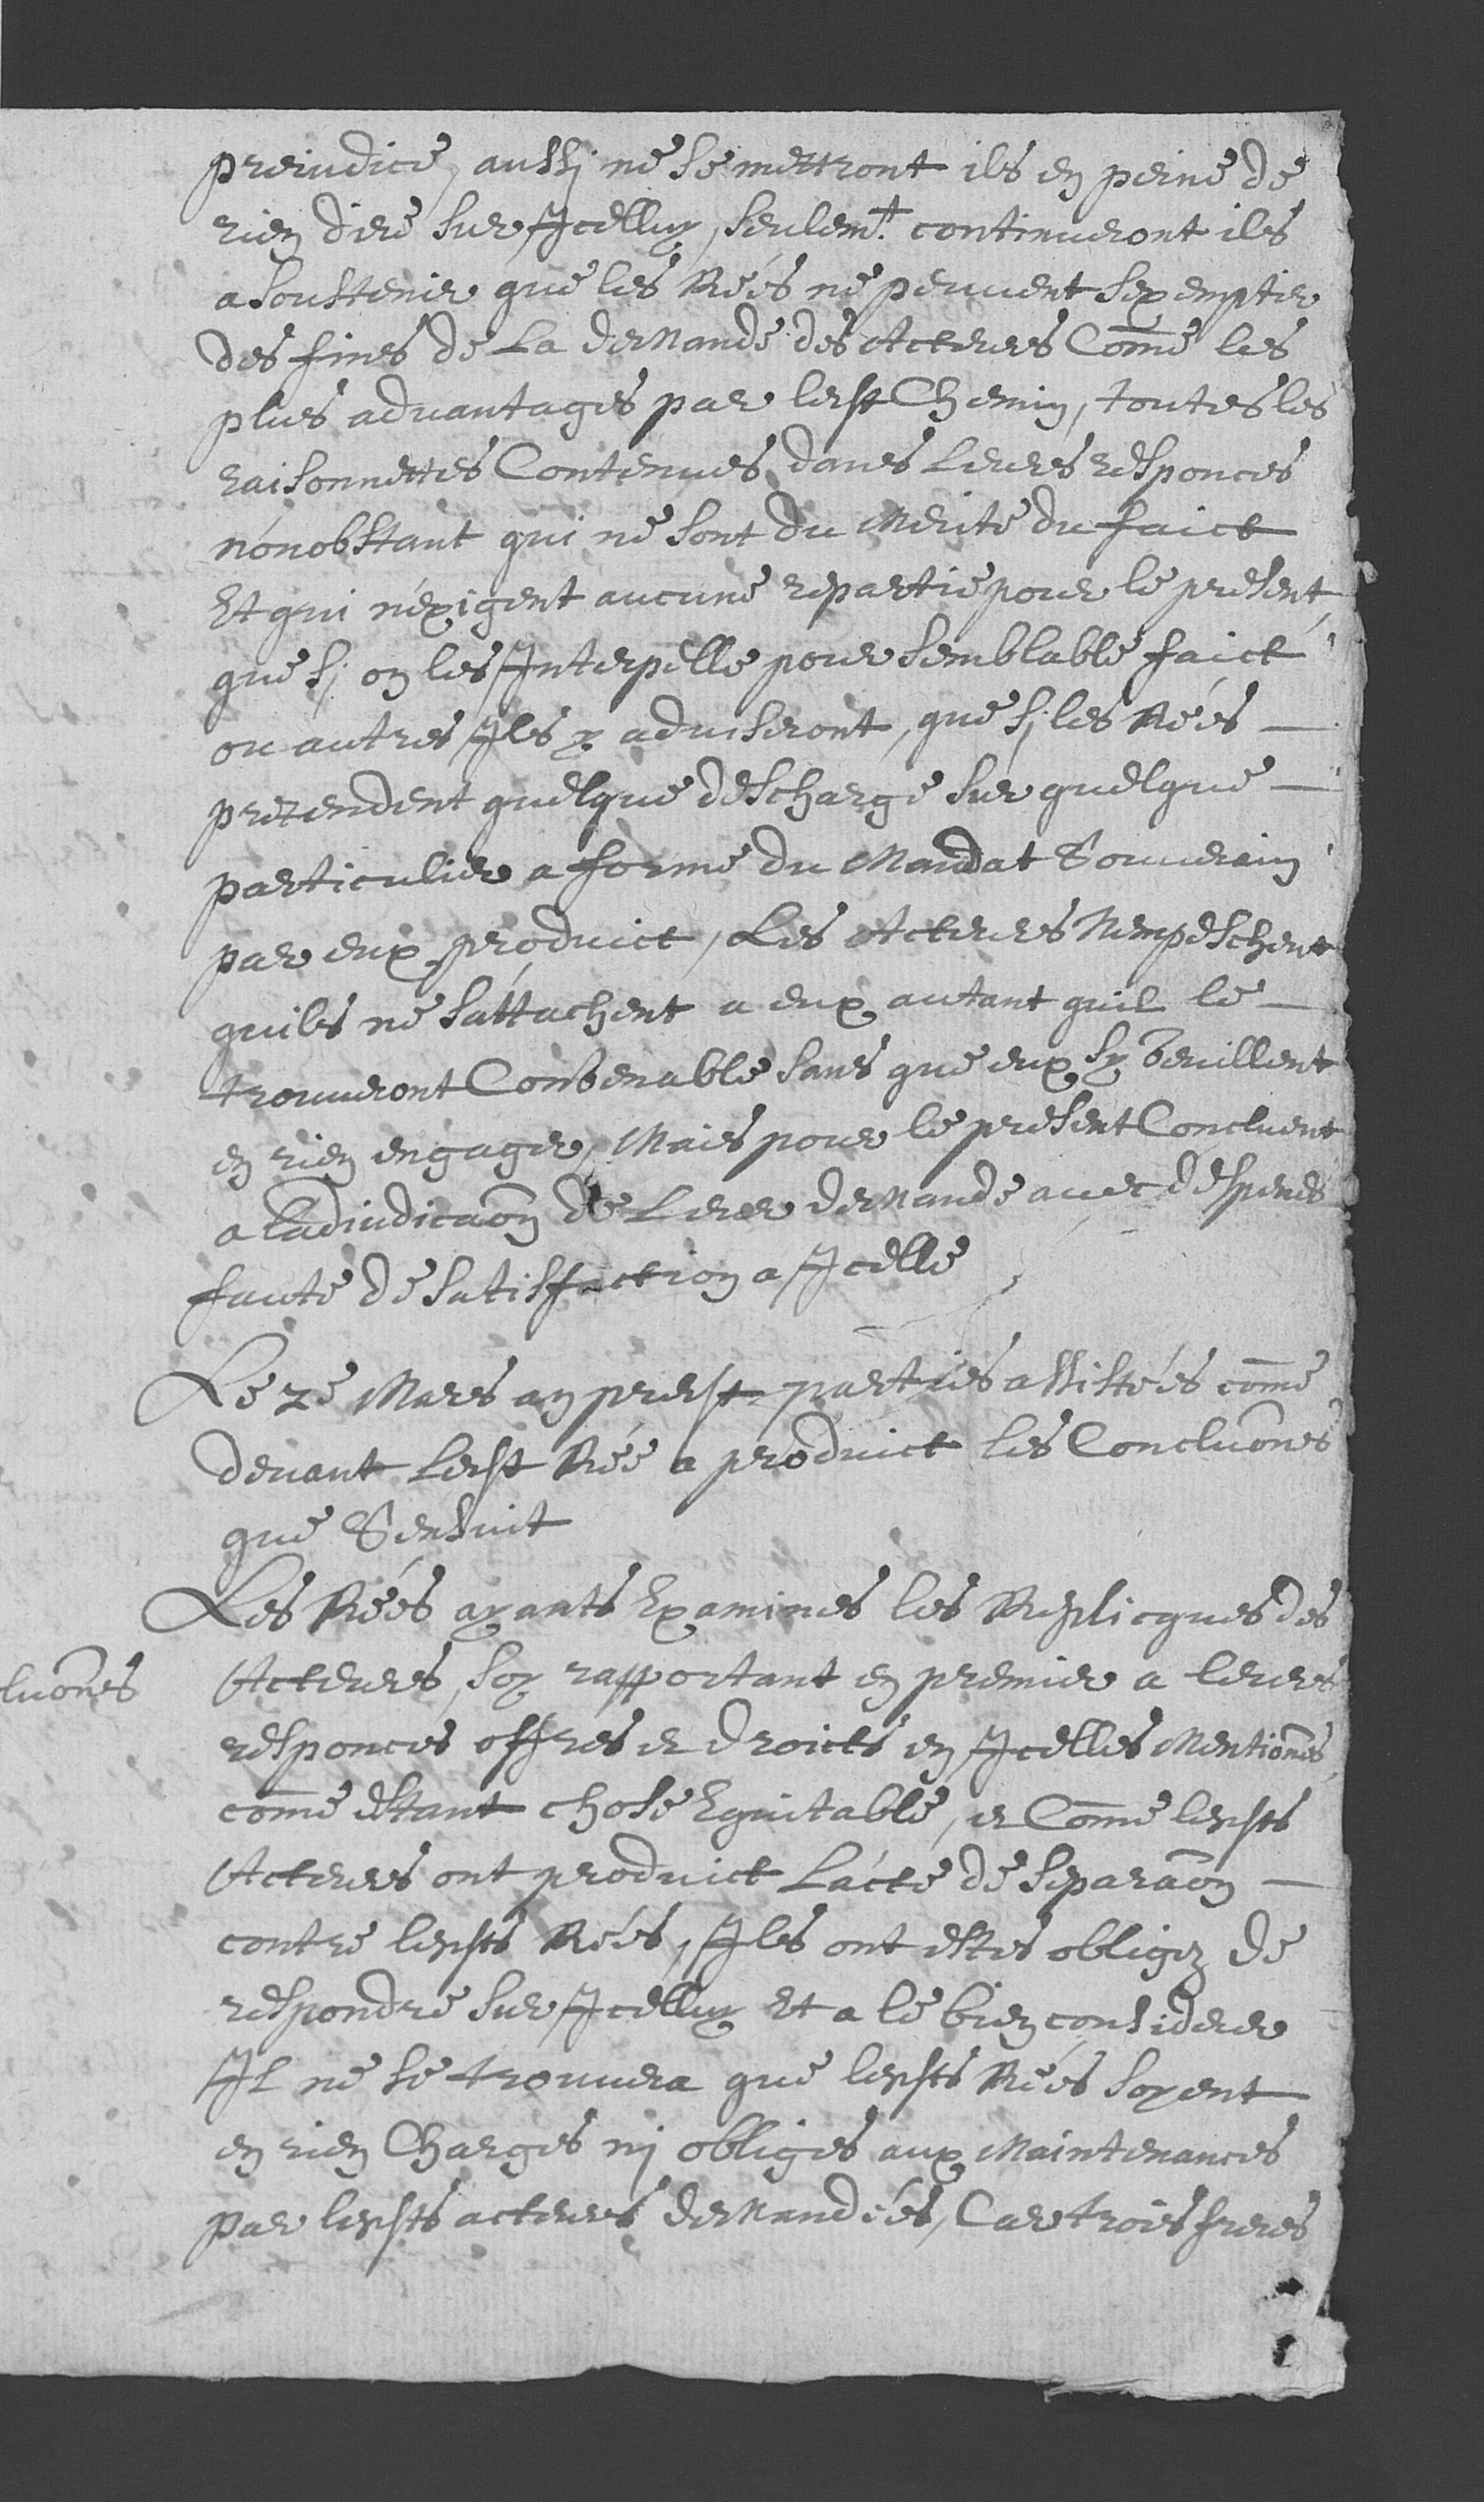 preiudice, aussj ne se mettront ils en peine de
rien dire sur Jcelluy, seulemt. continueront ils
a soustenir que les Réés ne peuuent sexempter
des fines de La demande des Acteurs Come les
plus aduantages par ledt Chemin, toutes les
raisonnettes Contenues dans Leurs responces
nonobstant qui ne sont du Merite du faict
Et qui néxigent aucune repartie pour le present,
que sj on les Jnterpelle pour semblable faict
ou autres Jls y aduiseront, que sj les Réés –
pretendent quelque descharge sur quelque –
particulier a forme du Mandat Souuerain
par eux produict, Les Acteurs Nempeschent
quils ne sáttachent a eux autant quil le –
trouueront Convenable sans que eux sy veuillent
en rien engager, Mais pour le present Concluent
a Ladiudicaon de Leur demande auec despends
faute de satisfaction a Jcelle
Le 2e Mars an predt parties assistéés come
deuant Ledt Réé a produict les Concluones
que Sensuit
Les Réés ayants Examines les Replicques des
luones
Acteurs, soy rapportant en premier a leurs
responces offres et droicts en Jcelles Mentiones,
come estant chose Equitable, et Come lesdts
Acteurs ont produict Lácte de separaon –
contre lesdts Réés, Jls ont estes obligez de
respondre sur Jcelluy Et a le bien considerer
Jl ne se trouuera que lesdts Réés soyent
en rien Charges nj obliges aux Maintenances
par lesdts acteurs demandéés, Car trois freres